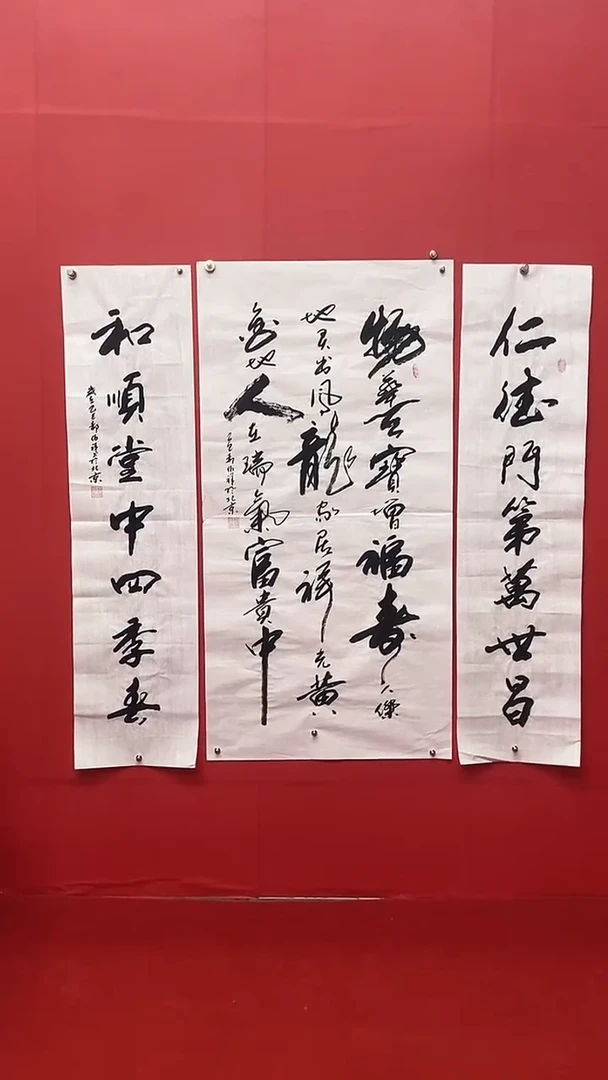 仁德門第萬世昌
物華天寶增福壽人傑
地靈出鳳龍家居祥光黃
金地人在瑞氣富貴中
和順堂中四季春